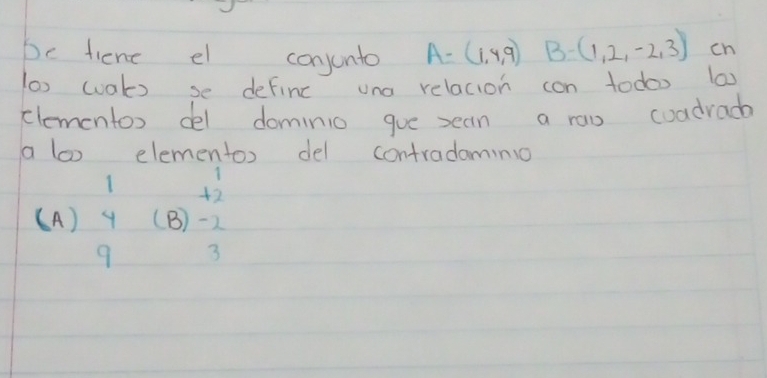 Se tiene el conjunto A=(1,4,9) B=(1,2,-2,3) en
los cuales se define una relación con todos los
elementos del dominio que sean a raiz cuadrado
a los elementos del contradominio
1 1
+2
(A) 4 (B) -2
9 3